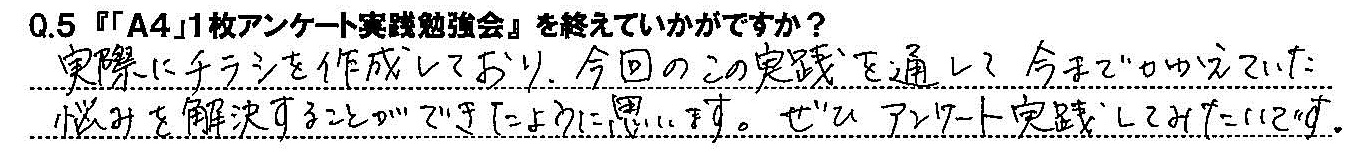 Q.5『「A4」1枚アンケート実践勉強会』を終えていかがですか？
実際にチラシを作成しており、今回のこの実践を通して今までかかえていた
悩みを解決することができたように思います。ぜひアンケート実践してみたいです。